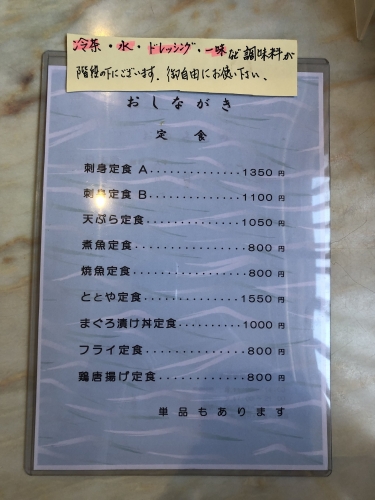 冷茶・水・ドレッシング・一味など調味料が
階段の下にございます。御自由にお使い下さい、
おしながき
定食
刺身定食 A・・・・・・・・・・・・・・1350 円
刺身定食 B・・・・・・・・・・・・・・1100 円
天ぷら定食・・・・・・・・・・・・・・1050 円
煮魚定食・・・・・・・・・・・・・・・・800 円
焼魚定食・・・・・・・・・・・・・・・・800 円
ととや定食・・・・・・・・・・・・・・1550 円
まぐろ漬け丼定食・・・・・・・・・・1000 円
フライ定食・・・・・・・・・・・・・・800 円
鶏唐揚げ定食・・・・・・・・・・・・800 円
単品もあります